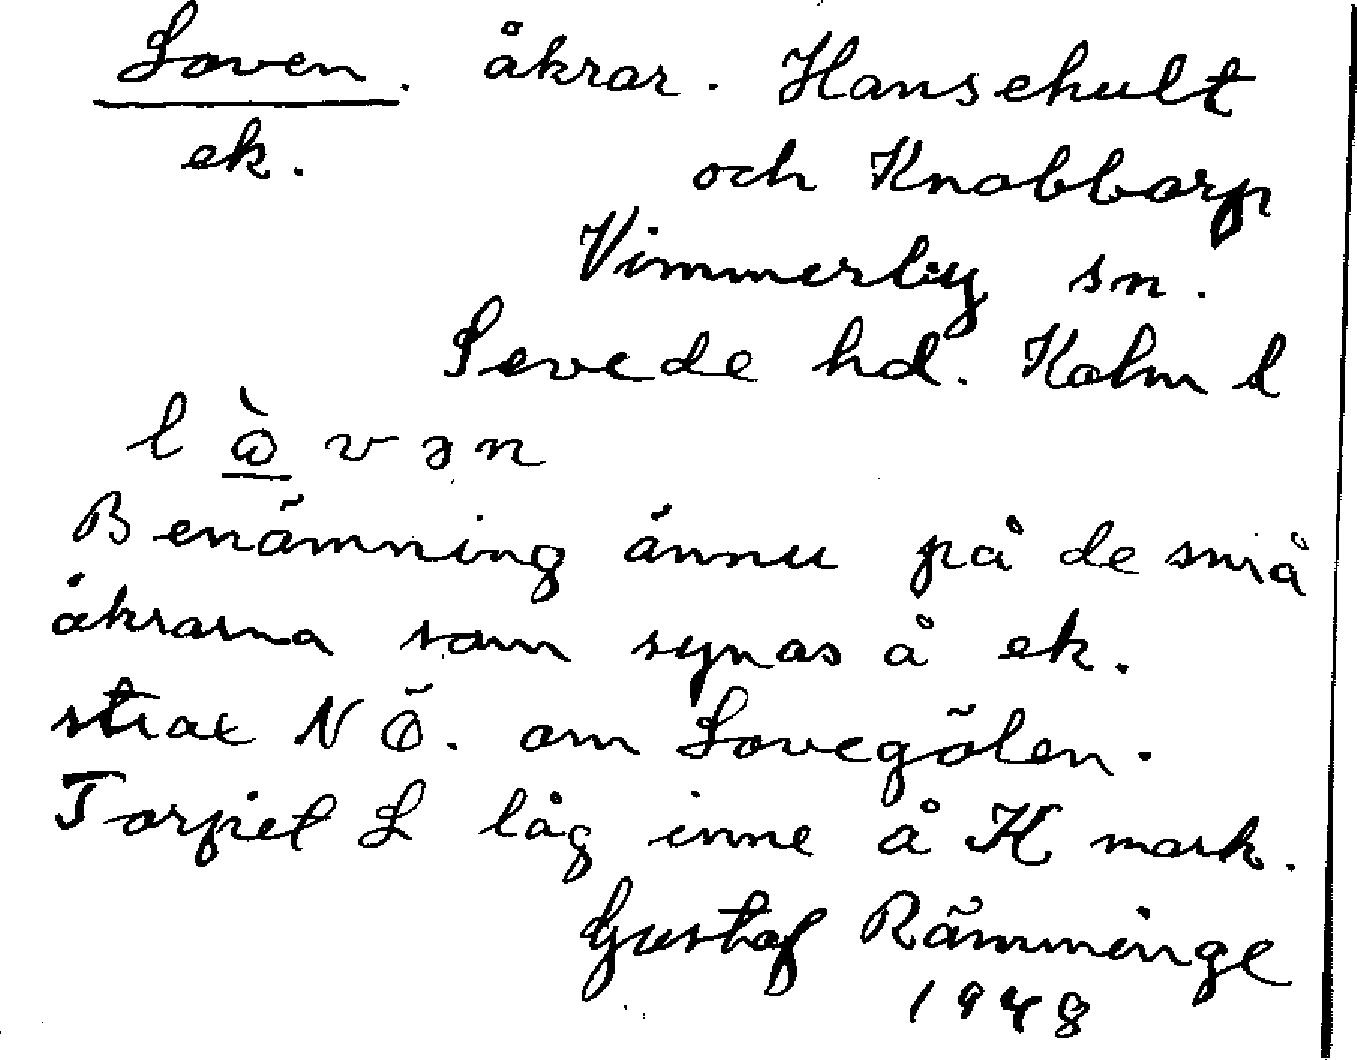 Loven. åkrar. Hansehult
ek. och Knobbarp
Vimmerby sn.
Sevede hd. Kalm l
l ò v ə n
Benämning ännu på de små
åkrarna som synas å ek.
strax NÖ. om Lovegölen.
Torpet L låg inne å K mark.
Gustaf Rämminge
1948